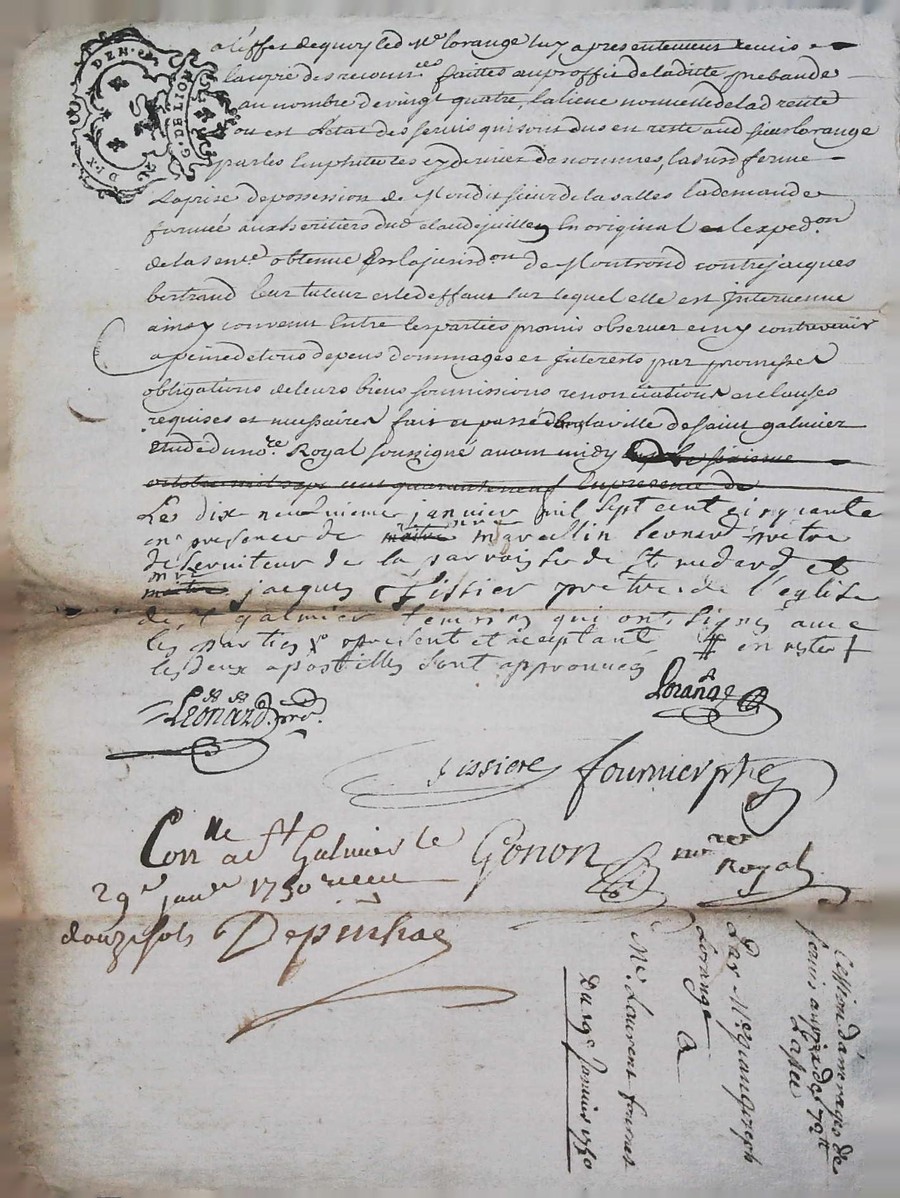 DEN. ec
G. DE LION
DIX
a leffet dequoy led. Mr lorange luy a presentement remis
la copie des reconnees faittes au proffit de laditte prebande
au nombre de vingt quatre, la lieue nommelle de lad rente
ou est letat des servis qui sont dus en reste aud sieur lorange
par les Emphiteotes cy dernier denommes, la susd ferme
la prise de possession de Mondit sieur de la salles la demande
formée aux heritiers dud claude juillen En original et lexpedon
de la sence obtenue En la jurisdon de Montrond contre jacques
bertrand leur tuteur et le deffaut sur lequel elle est Intervenue
ainsy convenu Entre les parties promis observer et ny contrevenir
a peine de tous depens dommages et Interests par promesses
obligations de leurs biens soumissions renonciations et clauses
requises et nessaires fait et passé dans la ville de saint galmier
Etude du nore Royal soussigné avant midy
octobre mil sept cent quarante neuf En presence de
Le dix neuvieme janvier mil sept cent cinquante
en presence de maitre mre marcellin leonard pretre
deserviteur de la parroisse de St medard et
mre
maitre jacques tissier pretre de l'eglise
de St galmier temoins qui ont signés avec
les parties & present et aceptant # en reste +
les deux apostilles sont approuvées
Leonard. prd.
Lorange
tissiere fournier ptre
Conlle a St Galmier le
29e janer 1750 receu
douze sols Depinhac
Gonon nore Royal
Cession darrerages de
servis au prix de 79tt
Par Mr
Lorange
A
Mr Laurent fournier
Du 19e Janvier 1750